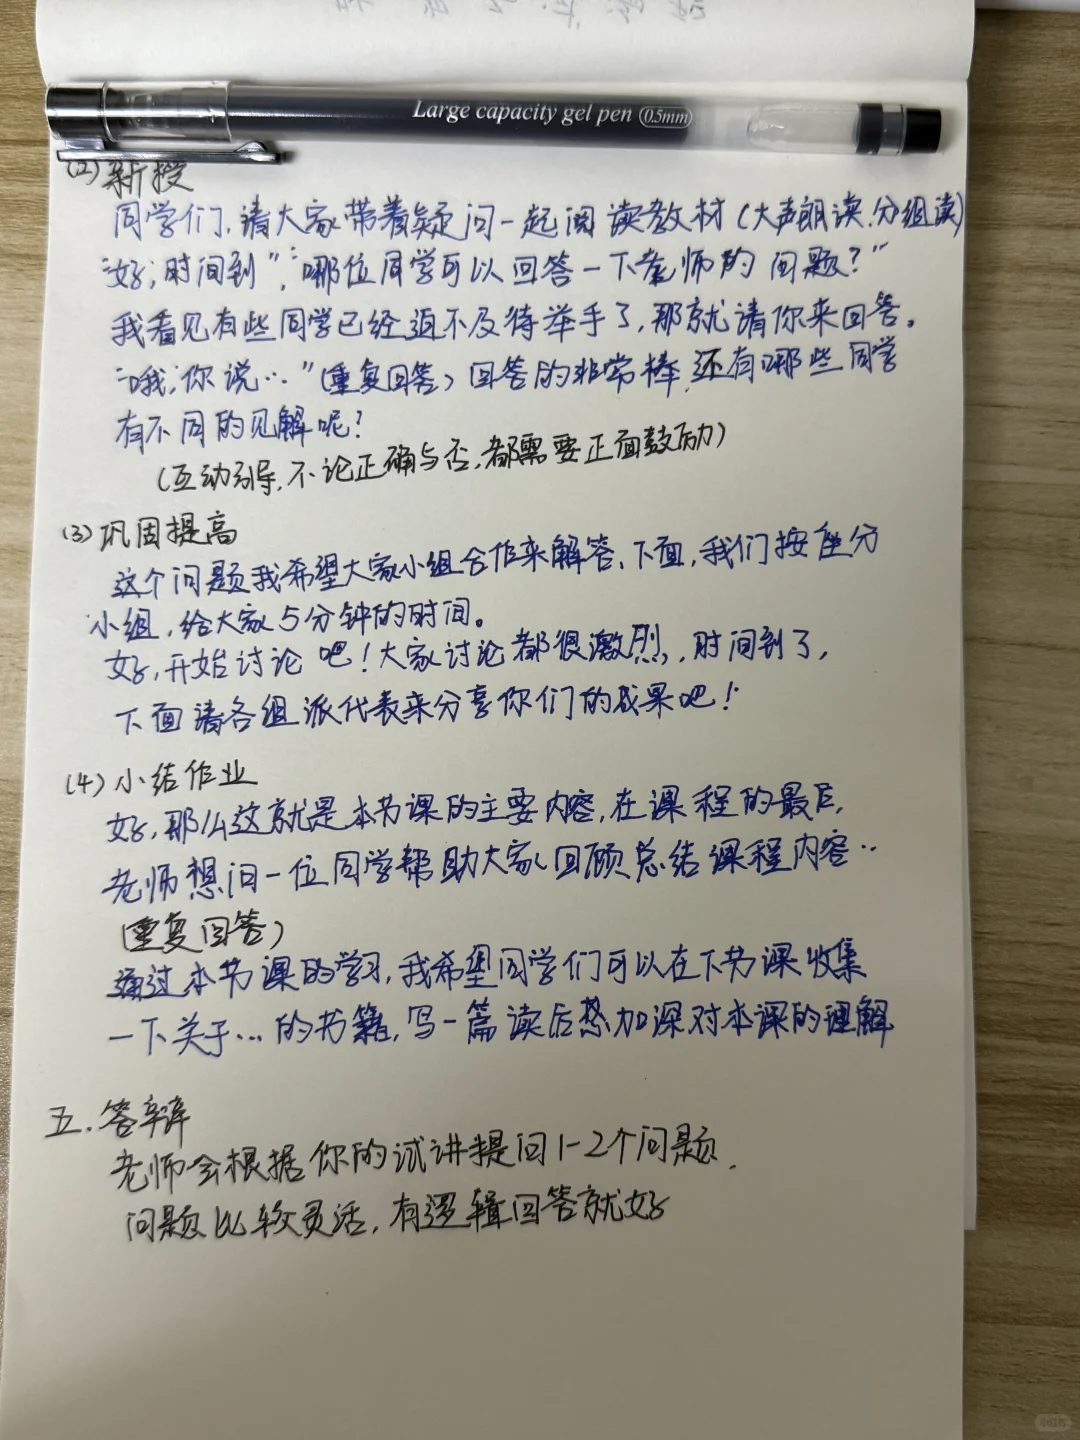 Large capacity gel pen 0.5mm
(2) 新授
同学们,请大家带着疑问一起阅读教材(大声朗读,分组读)
"好,时间到","哪位同学可以回答一下老师的问题?"
我看见有些同学已经迫不及待举手了,那就请你来回答。
"哦,你说…"(重复回答)回答的非常棒,还有哪些同学
有不同的见解呢?
(互动引导,不论正确与否,都需要正面鼓励)
(3) 巩固提高
这个问题我希望大家小组合作来解答,下面,我们按座分
小组,给大家5分钟的时间。
好,开始讨论吧!大家讨论都很激烈,时间到了,
下面请各组派代表来分享你们的成果吧!
(4) 小结作业
好,那么这就是本节课的主要内容,在课程的最后,
老师想问一位同学帮助大家回顾总结课程内容…
(重复回答)
通过本节课的学习,我希望同学们可以在下节课收集
一下关于…的书籍,写一篇读后感加深对本课的理解
五.答辩
老师会根据你的试讲提问1-2个问题.
问题比较灵活,有逻辑回答就好